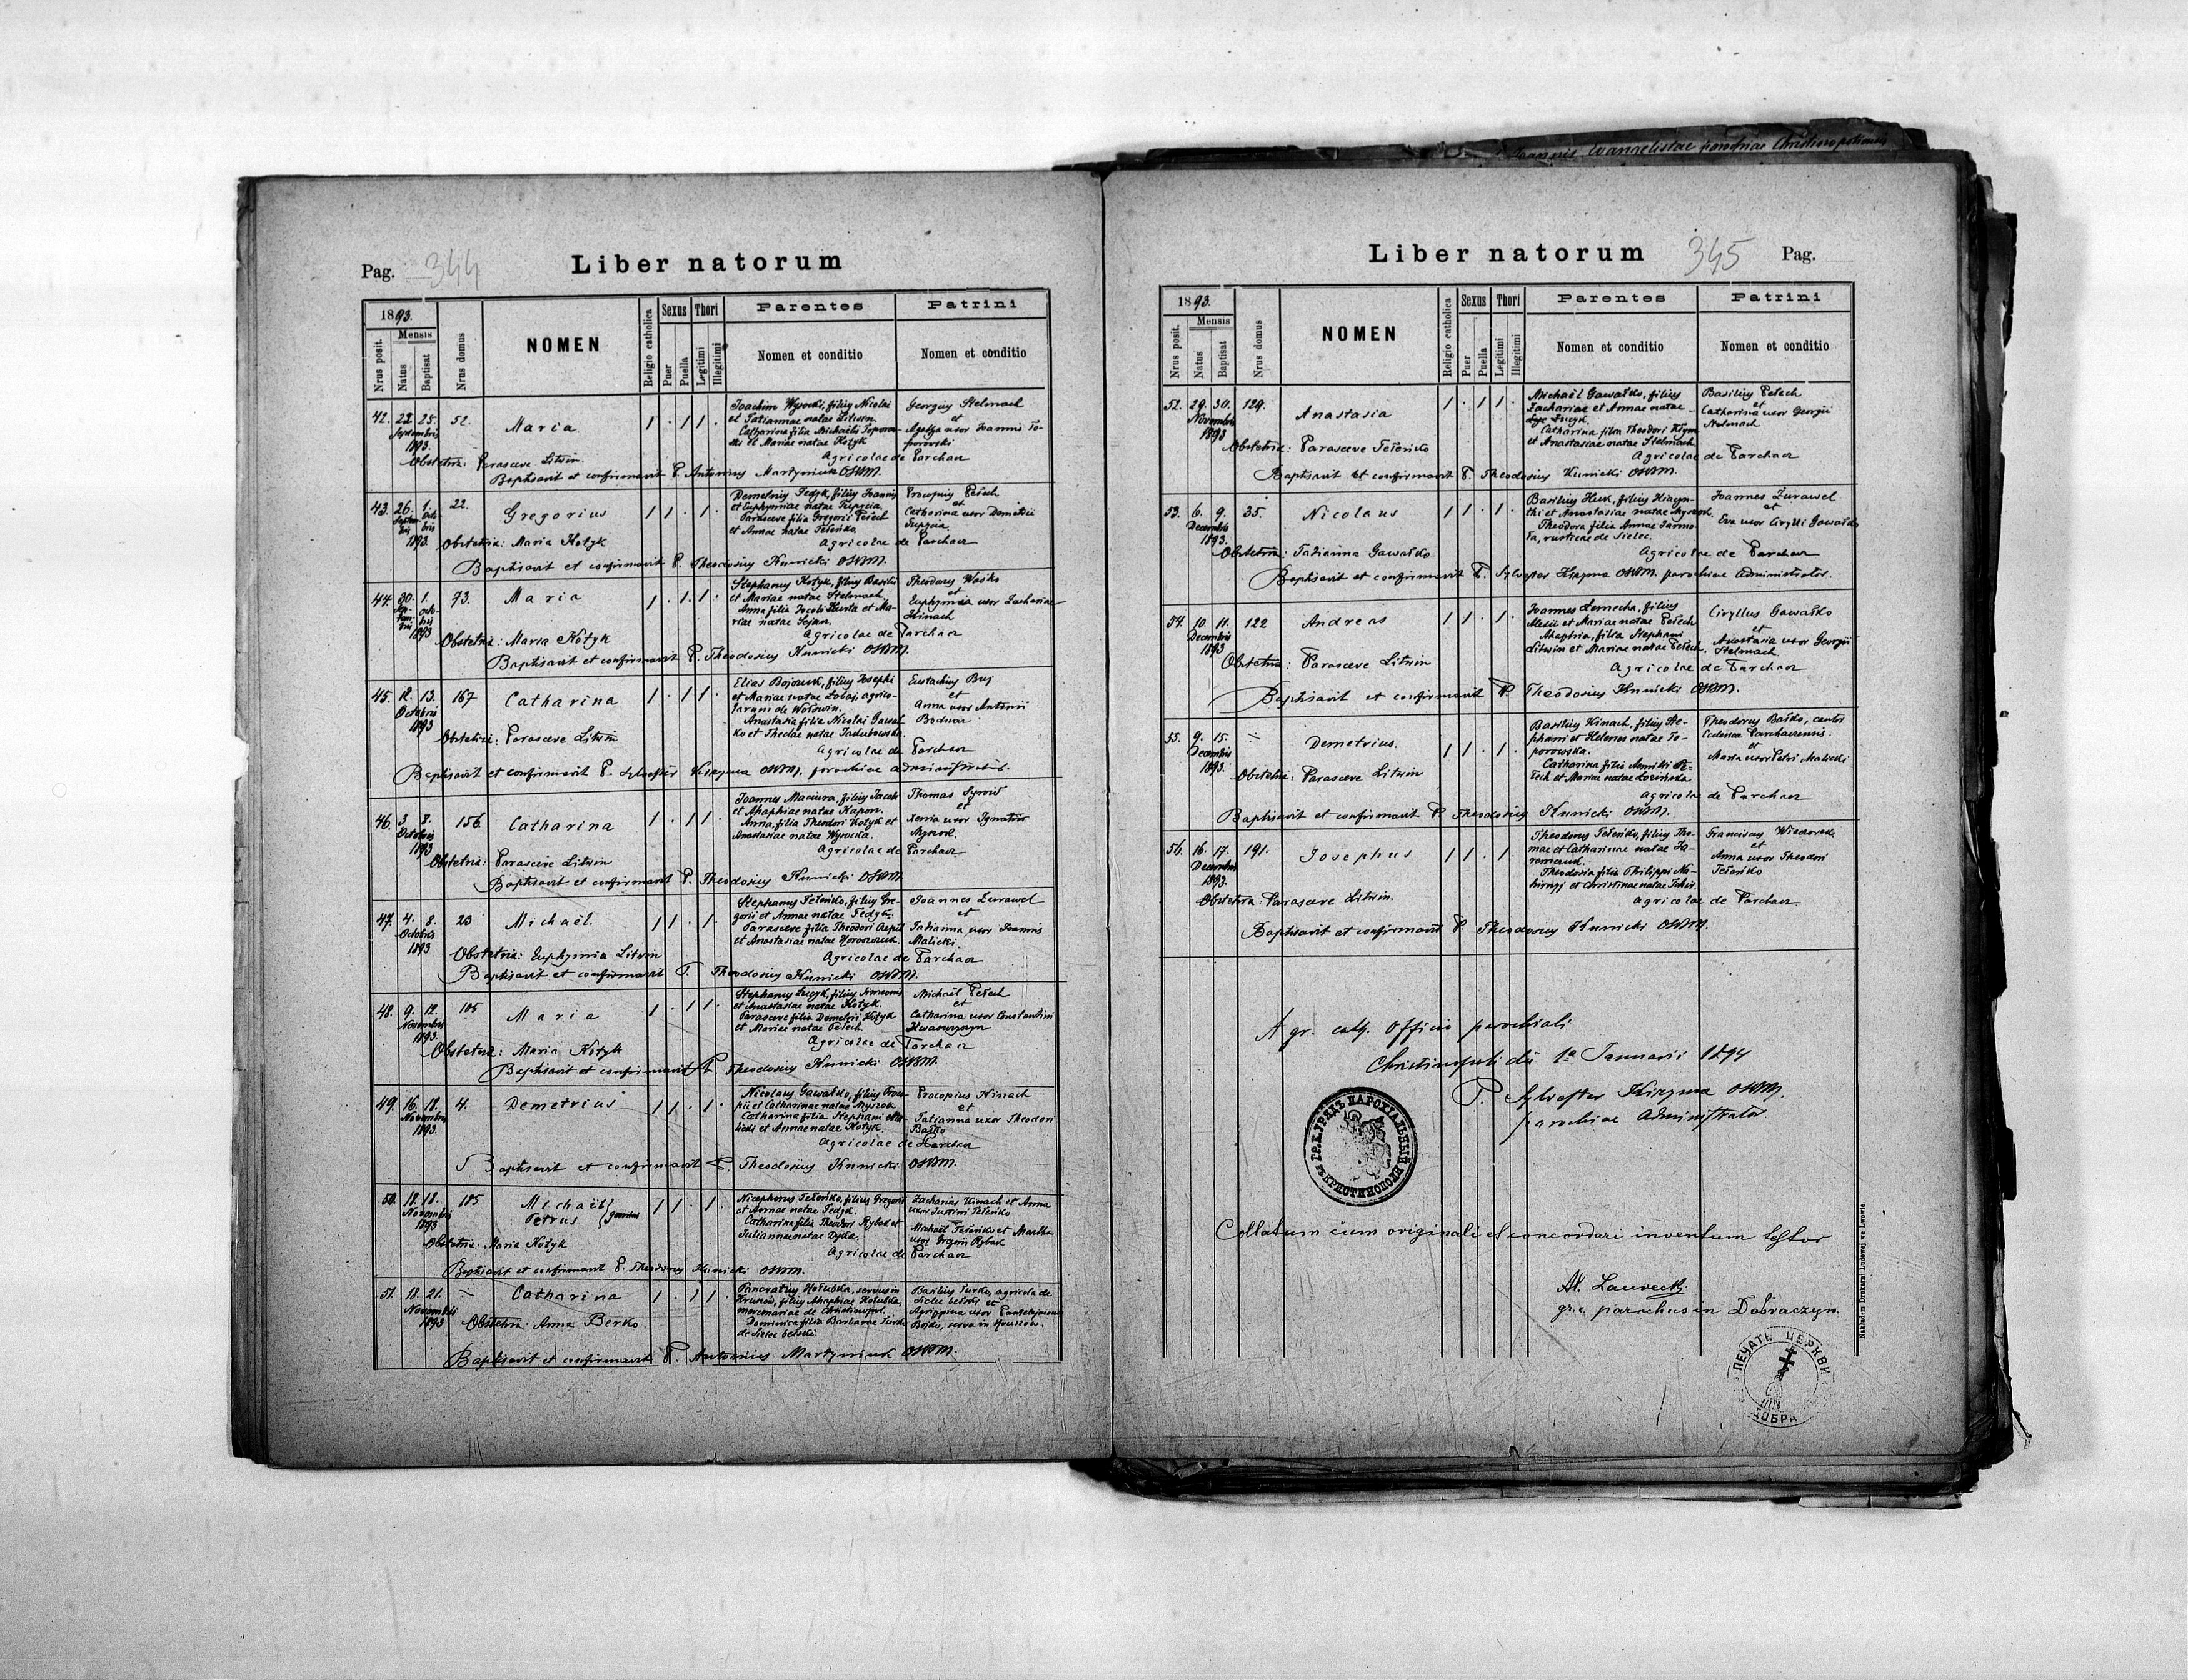 Joannis Evangelistae parochiae Christinopoliensis
Pag. 344
Liber natorum
1893.
Nrus posit.
Mensis
Natus
Baptisat
Nrus domus
NOMEN
Religio catholica
Sexus
Puer
Puella
Thori
Legitimi
Illegitimi
Parentes
Nomen et conditio
Patrini
Nomen et conditio
42. 22. 25. 52. Maria 1 . 1 1 .
Septembris
1893.
Joachim Wysocki, filius Nicolai
et Tatiannae natae Litwin.
Catharina filia Michaelis Toporow-
ski et Mariae natae Kotyk
Georgius Stelmach
et
Agafya uxor Joannis To-
porowski
Agricolae de Parchacz
Obstetrix: Parasceve Litwin.
Baptisavit et confirmavit P. Antonius Martyniuk OSBM.
43. 26. 1. 22. Gregorius 1 1 . 1 .
Septembris
Octobris
1893.
Demetrius Fedyk, filius Joannis
et Euphymiae natae
Parasceve filia Gregorii Pełech
et Annae natae Teleńko
Procopius Pełech
et
Catharina uxor Demetrii
Agricolae de Parchacz
Obstetrix: Maria Kotyk
Baptisavit et confirmavit P. Theodosius Kunicki OSBM.
44. 30. 1. 73. Maria 1 . 1 . 1 .
1893
Stephanus Kotyk, filius Basilii
et Mariae natae Stelmach
Anna filia Jacobi et Ma-
riae natae
Theodorus Wasko
et
Euphymia uxor Zachariae
Kinach
Agricolae de Parchacz
Obstetrix: Maria Kotyk
Baptisavit et confirmavit P. Theodosius Kunicki OSBM.
45. 12. 13. 167 Catharina 1 . 1 1 .
Octobris
1893
Elias Bojczuk, filius Josephi
et Mariae natae Łobaj, agrico-
larum de Wolswin.
Anastasia filia Nicolai Gawał-
ko et Theclae natae Jakubowska.
Eustachius Buj
et
Anna uxor Antonii
Bodnar
Agricolae de Parchacz
Obstetrix: Parasceve Litwin
Baptisavit et confirmavit P. Sylvester Kizyma OSBM. parochiae administrator.
46. 3. 8. 156. Catharina 1 . 1 1 .
Octobris
1893
Joannes Maciura, filius Jacobi
et Ahaphiae natae Kapon.
Anna, filia Theodori Kotyk et
Anastasiae natae Wysocka.
Thomas
et
Xenia uxor Ignatii
Myszok
Agricolae de Parchacz
Obstetrix: Parasceve Litwin
Baptisavit et confirmavit P. Theodosius Kunicki OSBM.
47. 4. 8. 23 Michaël. 1 1 . 1 .
Octobris
1893
Stephanus Teleńko, filius Gre-
gorii et Annae natae Fedyk.
Parasceve filia Theodori
et Anastasiae natae
Joannes Zurawel
et
Tatianna uxor Joannis
Malicki
Agricolae de Parchacz
Obstetrix: Euphymia Litwin
Baptisavit et confirmavit P. Theodosius Kunicki OSBM.
48. 9. 12. 105 Maria 1 . 1 1 .
Novembris
1893.
Stephanus Łucyk, filius Simeonis
et Anastasiae natae Kotyk.
Parasceve filia Demetrii Kotyk
et Mariae natae Pełech.
Michaël Pełech
et
Catharina uxor Constantini
Agricolae de Parchacz
Obstetrix: Maria Kotyk
Baptisavit et confirmavit P. Theodosius Kunicki OSBM.
49. 16. 18. 4. Demetrius 1 1 . 1 .
Novembris
1893.
Nicolaus Gawałko, filius Proco-
pii et Catharinae natae Myszok
Catharina filia Stephani Ma-
licki et Annae natae Kotyk.
Procopius Kinach
et
Tatianna uxor Theodori
Baśko
Agricolae de Parchacz
Baptisavit et confirmavit P. Theodosius Kunicki OSBM.
50. 12. 18. 185 Michaël } gemini 1 1 . 1 .
Petrus
Novembris
1893
Nicephorus Teleńko, filius Gregorii
et Annae natae Fedyk.
Catharina filia Theodori Rybak et
Juliannae natae Dyka.
Zacharias Kinach et Anna
uxor Justini Teleńko
Michaël Teleńko et Martha
uxor Gregorii Rybak
Agricolae de Parchacz
Obstetrix: Maria Kotyk
Baptisavit et confirmavit P. Theodosius Kunicki OSBM.
51. 18. 21. Catharina 1 . 1 1 .
Novembris
1893
Pancratius Hołubka, servus in
filius Ahaphiae Hołubka,
mercenariae de Christinopol.
Dominica filia Barbarae Turko
de Sielec bełski
Basilius Turko, agricola de
Sielec bełski et
Agrippina uxor Pantelejmonis
Bojko, serva in
Obstetrix: Anna Berko
Baptisavit et confirmavit P. Antonius Martyniuk OSBM.
Liber natorum
345 Pag.
1893.
Nrus posit.
Mensis
Natus
Baptisat
Nrus domus
NOMEN
Religio catholica
Sexus
Puer
Puella
Thori
Legitimi
Illegitimi
Parentes
Nomen et conditio
Patrini
Nomen et conditio
52. 29. 30. 129. Anastasia 1 . 1 1 .
Novembris
1893
Michaël Gawałko, filius
Zachariae et Annae natae
Łucyk.
Catharina filia Theodori Klym
et Anastasiae natae Stelmach
Basilius Pełech
et
Catharina uxor Georgii
Stelmach
Agricolae de Parchacz
Obstetrix: Parasceve Teleńko
Baptisavit et confirmavit P. Theodosius Kunicki OSBM.
53. 6. 9. 35. Nicolaus 1 1 . 1 .
Decembris
1893.
Basilius Huk, filius Hiacyn-
thi et Anastasiae natae Myszok.
Theodora filia Annae Jarmo-
ła, rusticae de Sielec.
Joannes Zurawel
et
Eva uxor Cirylli Gawałko
Agricolae de Parchacz
Obstetrix: Tatianna Gawałko
Baptisavit et confirmavit P. Sylvester Kizyma OSBM. parochiae administrator.
54. 10. 11. 122 Andreas 1 1 . 1 .
Decembris
1893
Joannes Lemecha, filius
Alexii et Mariae natae Pełech
Ahaphia, filia Stephani
Litwin et Mariae natae Pełech.
Ciryllus Gawałko
et
Anastasia uxor Georgii
Stelmach.
Agricolae de Parchacz
Obstetrix: Parasceve Litwin
Baptisavit et confirmavit P. Theodosius Kunicki OSBM.
55. 9. 15. Demetrius. 1 1 . 1 .
Decembris
1893.
Basilius Kinach, filius Ste-
phani et Helenae natae To-
porowska.
Catharina filia Pe-
łech et Mariae natae Łozińska
Theodorus Baśko, cantor
Ecclesiae Parchacensis.
et
Maria uxor Petri Malicki
Agricolae de Parchacz
Obstetrix: Parasceve Litwin
Baptisavit et confirmavit P. Theodosius Kunicki OSBM.
56. 16. 17. 191. Josephus 1 1 . 1 .
Decembris
1893.
Theodorus Teleńko, filius Tho-
mae et Catharinae natae Ja-
remczuk.
Theodosia filia Philippi Na-
hirnyj et Christinae natae
Franciscus Wieczorek
et
Anna uxor Theodori
Teleńko
Agricolae de Parchacz
Obstetrix: Parasceve Litwin.
Baptisavit et confirmavit P. Theodosius Kunicki OSBM.
A gr. cath. Officio parochiali
Christinopoli die 1a Januarii 1894
P. Sylvester Kizyma OSBM.
parochiae Administrator
ГР.К. УРЯДЪ ПАРОХІАЛЬНЫЙ
ВЪ КРИСТИНОПОЛИ
Collatum cum originali et concordare inventum testor
Al. Laurecki
gr. c. parochus in Dobraczyn
ПЕЧАТЬ ЦЕРКВИ
ДОБРА
Nakładem Drukarni Ludowej we Lwowie.